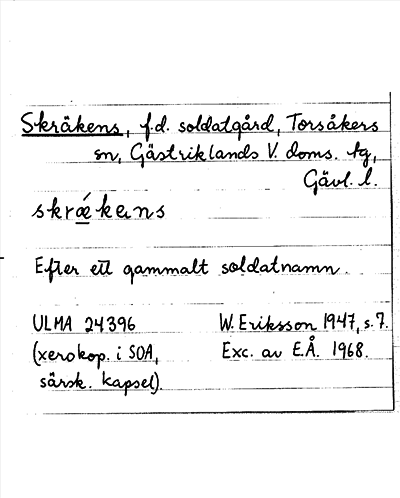 Skräkens, f.d. soldatgård, Torsåkers
sn, Gästriklands V. doms. tg,
Gävl. l.
skrǽkens
Efter ett gammalt soldatnamn.
ULMA 24396 W. Eriksson 1947, s. 7.
(xerokop. i SOA, Exc. av E.Å. 1968.
särsk. kapsel).